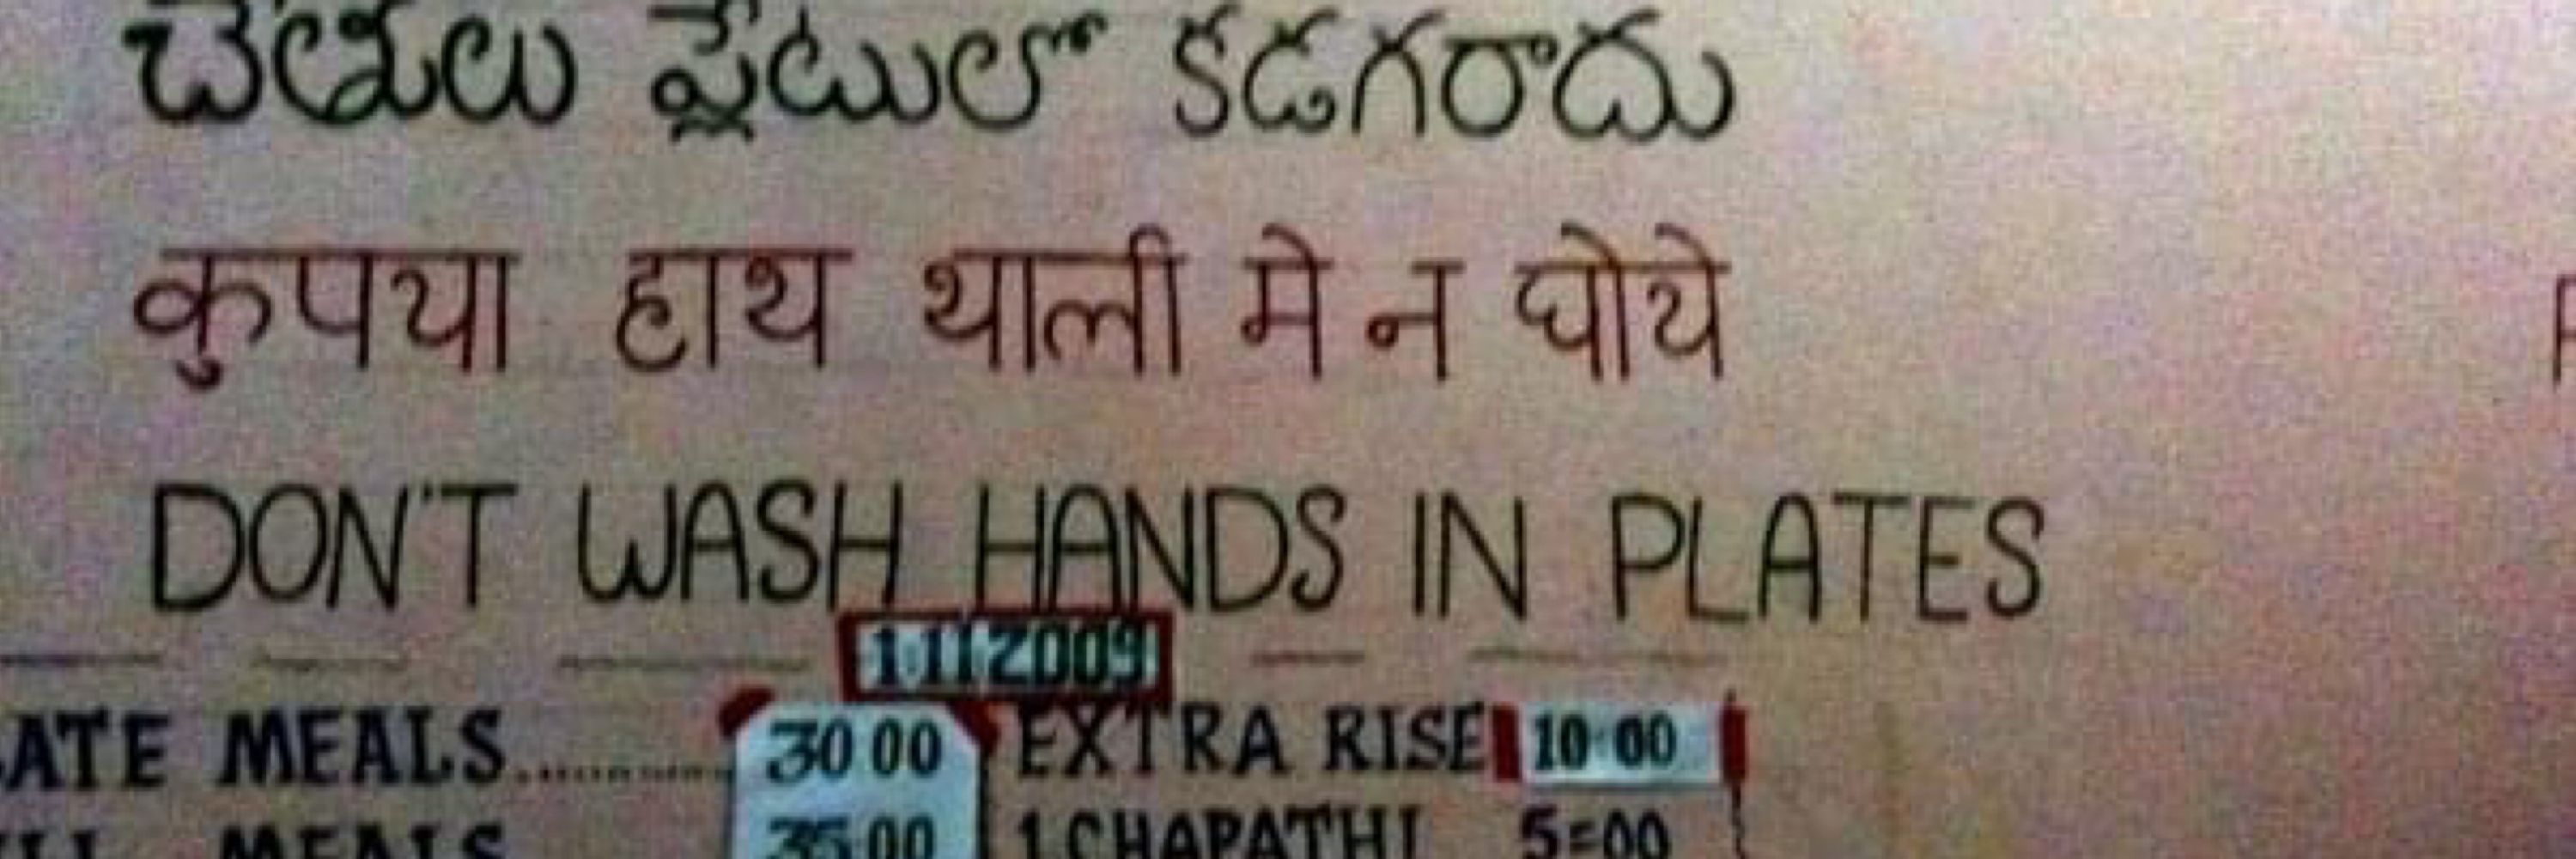 చేతులు ప్లేటులో కడగరాదు
कुपया हाथ थाली मे न घोये
DON'T WASH HANDS IN PLATES
1.11.2009
MEALS.......... 30 00 EXTRA RISE 10.00
MEALS 35.00 1 CHAPATHI 5=00